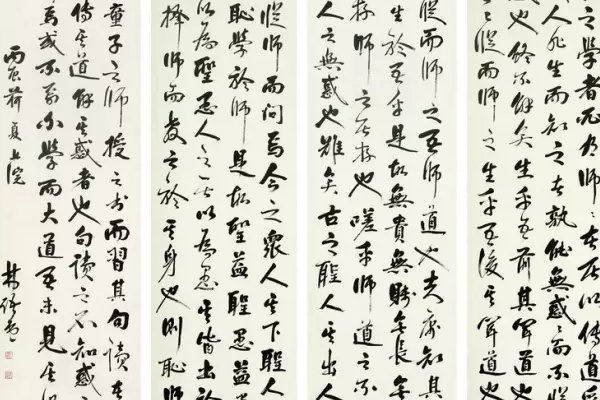 之學者必有師師者所以傳道受
人非生而知之者孰能無惑惑而不從
也終不解矣生乎吾前其聞道也
從而師之生乎吾後其聞道也
從而師之吾師道也夫庸知其
生於吾乎是故無貴無賤無長無
存師之所存也嗟乎師道之不
人之無惑也難矣古之聖人其出人
從師而問焉今之眾人其下聖人
恥學於師是故聖益聖愚益愚
以為聖愚人之所以為愚其皆出於
擇師而教之於其身也則恥師
童子之師授之書而習其句讀者
傳其道解其惑者也句讀之不知惑之
焉或不焉小學而大道吾未見其
丙寅荷夏上浣
林